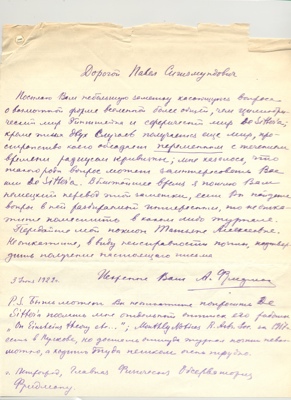 Дорогой Павел Сигизмундович
Посылаю Вам небольшую заметку касающуюся вопроса
о возможной форме вселенной более общей, чем цилиндри-
ческий мир Einstein'а и сферический мир de Sitter'а;
кроме этих двух случаев получается еще мир, про-
странство коего обладает переменным с течением
времени радиусом кривизны; мне казалось, что
такого рода вопрос может заинтересовать Вас
или de Sitter'а. В ближайшее время я пошлю Вам
немецкий перевод этой заметки, если Вы найдете
вопрос в ней разбираемый интересным, то не отка-
жите поместить в какой либо журнал.
Передайте мой поклон Татьяне Алексеевне.
Не откажите, в виду неисправности почты, подтвер-
дить получение настоящего письма
Искренне Ваш А. Фридман
1922 г.
P.S. Если можно Вы попросите de
Sitter'а послать мне оттиск его работы
"On Einstein's theory ...", Monthly Notices R. Astr. Soc. за 1917
есть в Пулкове, но достать оттуда журнал почти невоз-
можно, а ходить туда пешком очень трудно.
Петроград, Главная Физическая Обсерватория
Фридману.